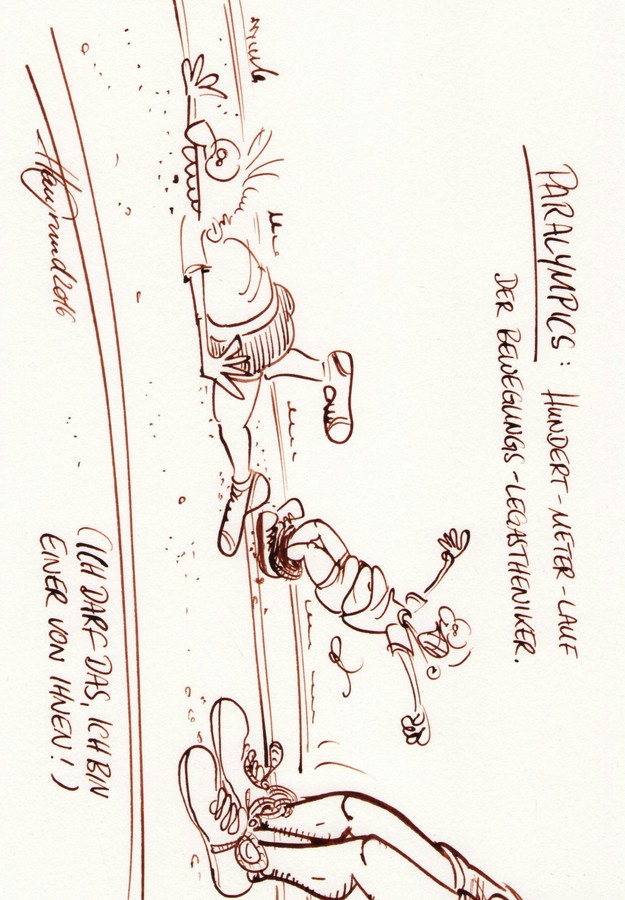 PARALYMPICS: HUNDERT-METER-LAUF
DER BEWEGUNGS-LEGASTHENIKER.
(ICH DARF DAS, ICH BIN
EINER VON IHNEN!)